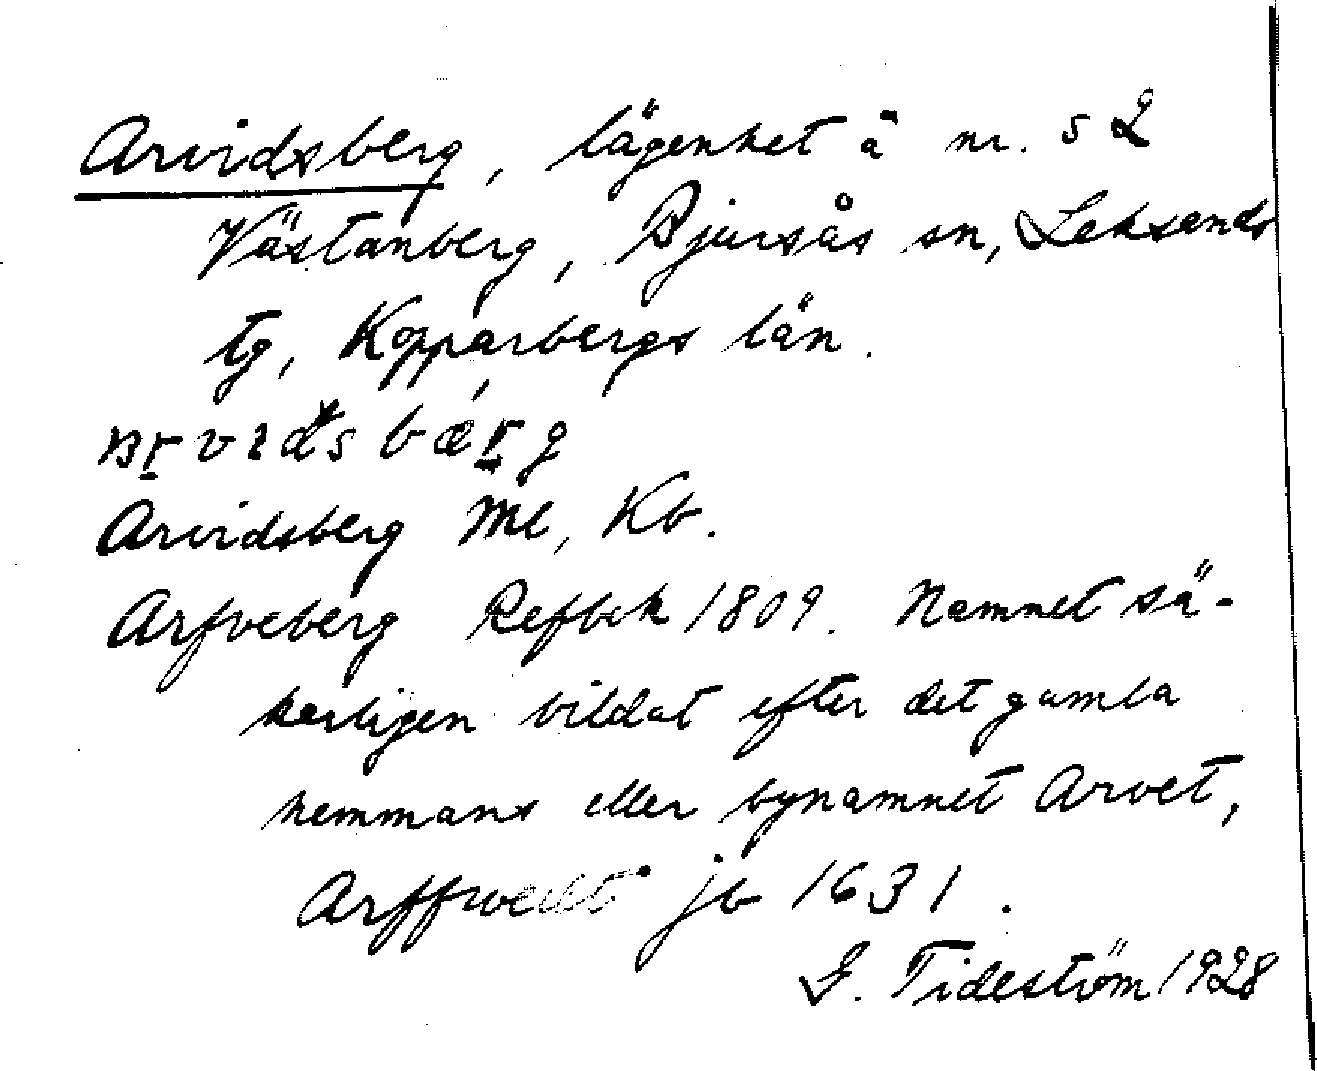 Arvidsberg, lägenhet å nr. s 2
Västanberg, Bjursås sn, Leksands
tg, Kopparbergs län.
Arvidsberg Ml, Kb.
Arfveberg Refbck 1809. Namnet sä-
kerligen bildat efter det gamla
hemmans eller bynamnet Arvet,
jb 1631.
G. Tideström 1928